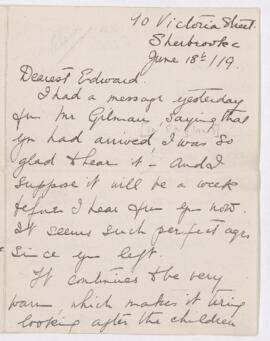 70 Victoria Street.
Sherbrooke
June 18th/19.
Dearest Edward.
I had a message yesterday
from Mr Gilman, saying that
you had arrived I was so
glad to hear it - And I
suppose it will be a week
before I hear from you now.
It seems such perfect ages
since you left.
It continues to be very
warm, which makes it tiring
looking after the children